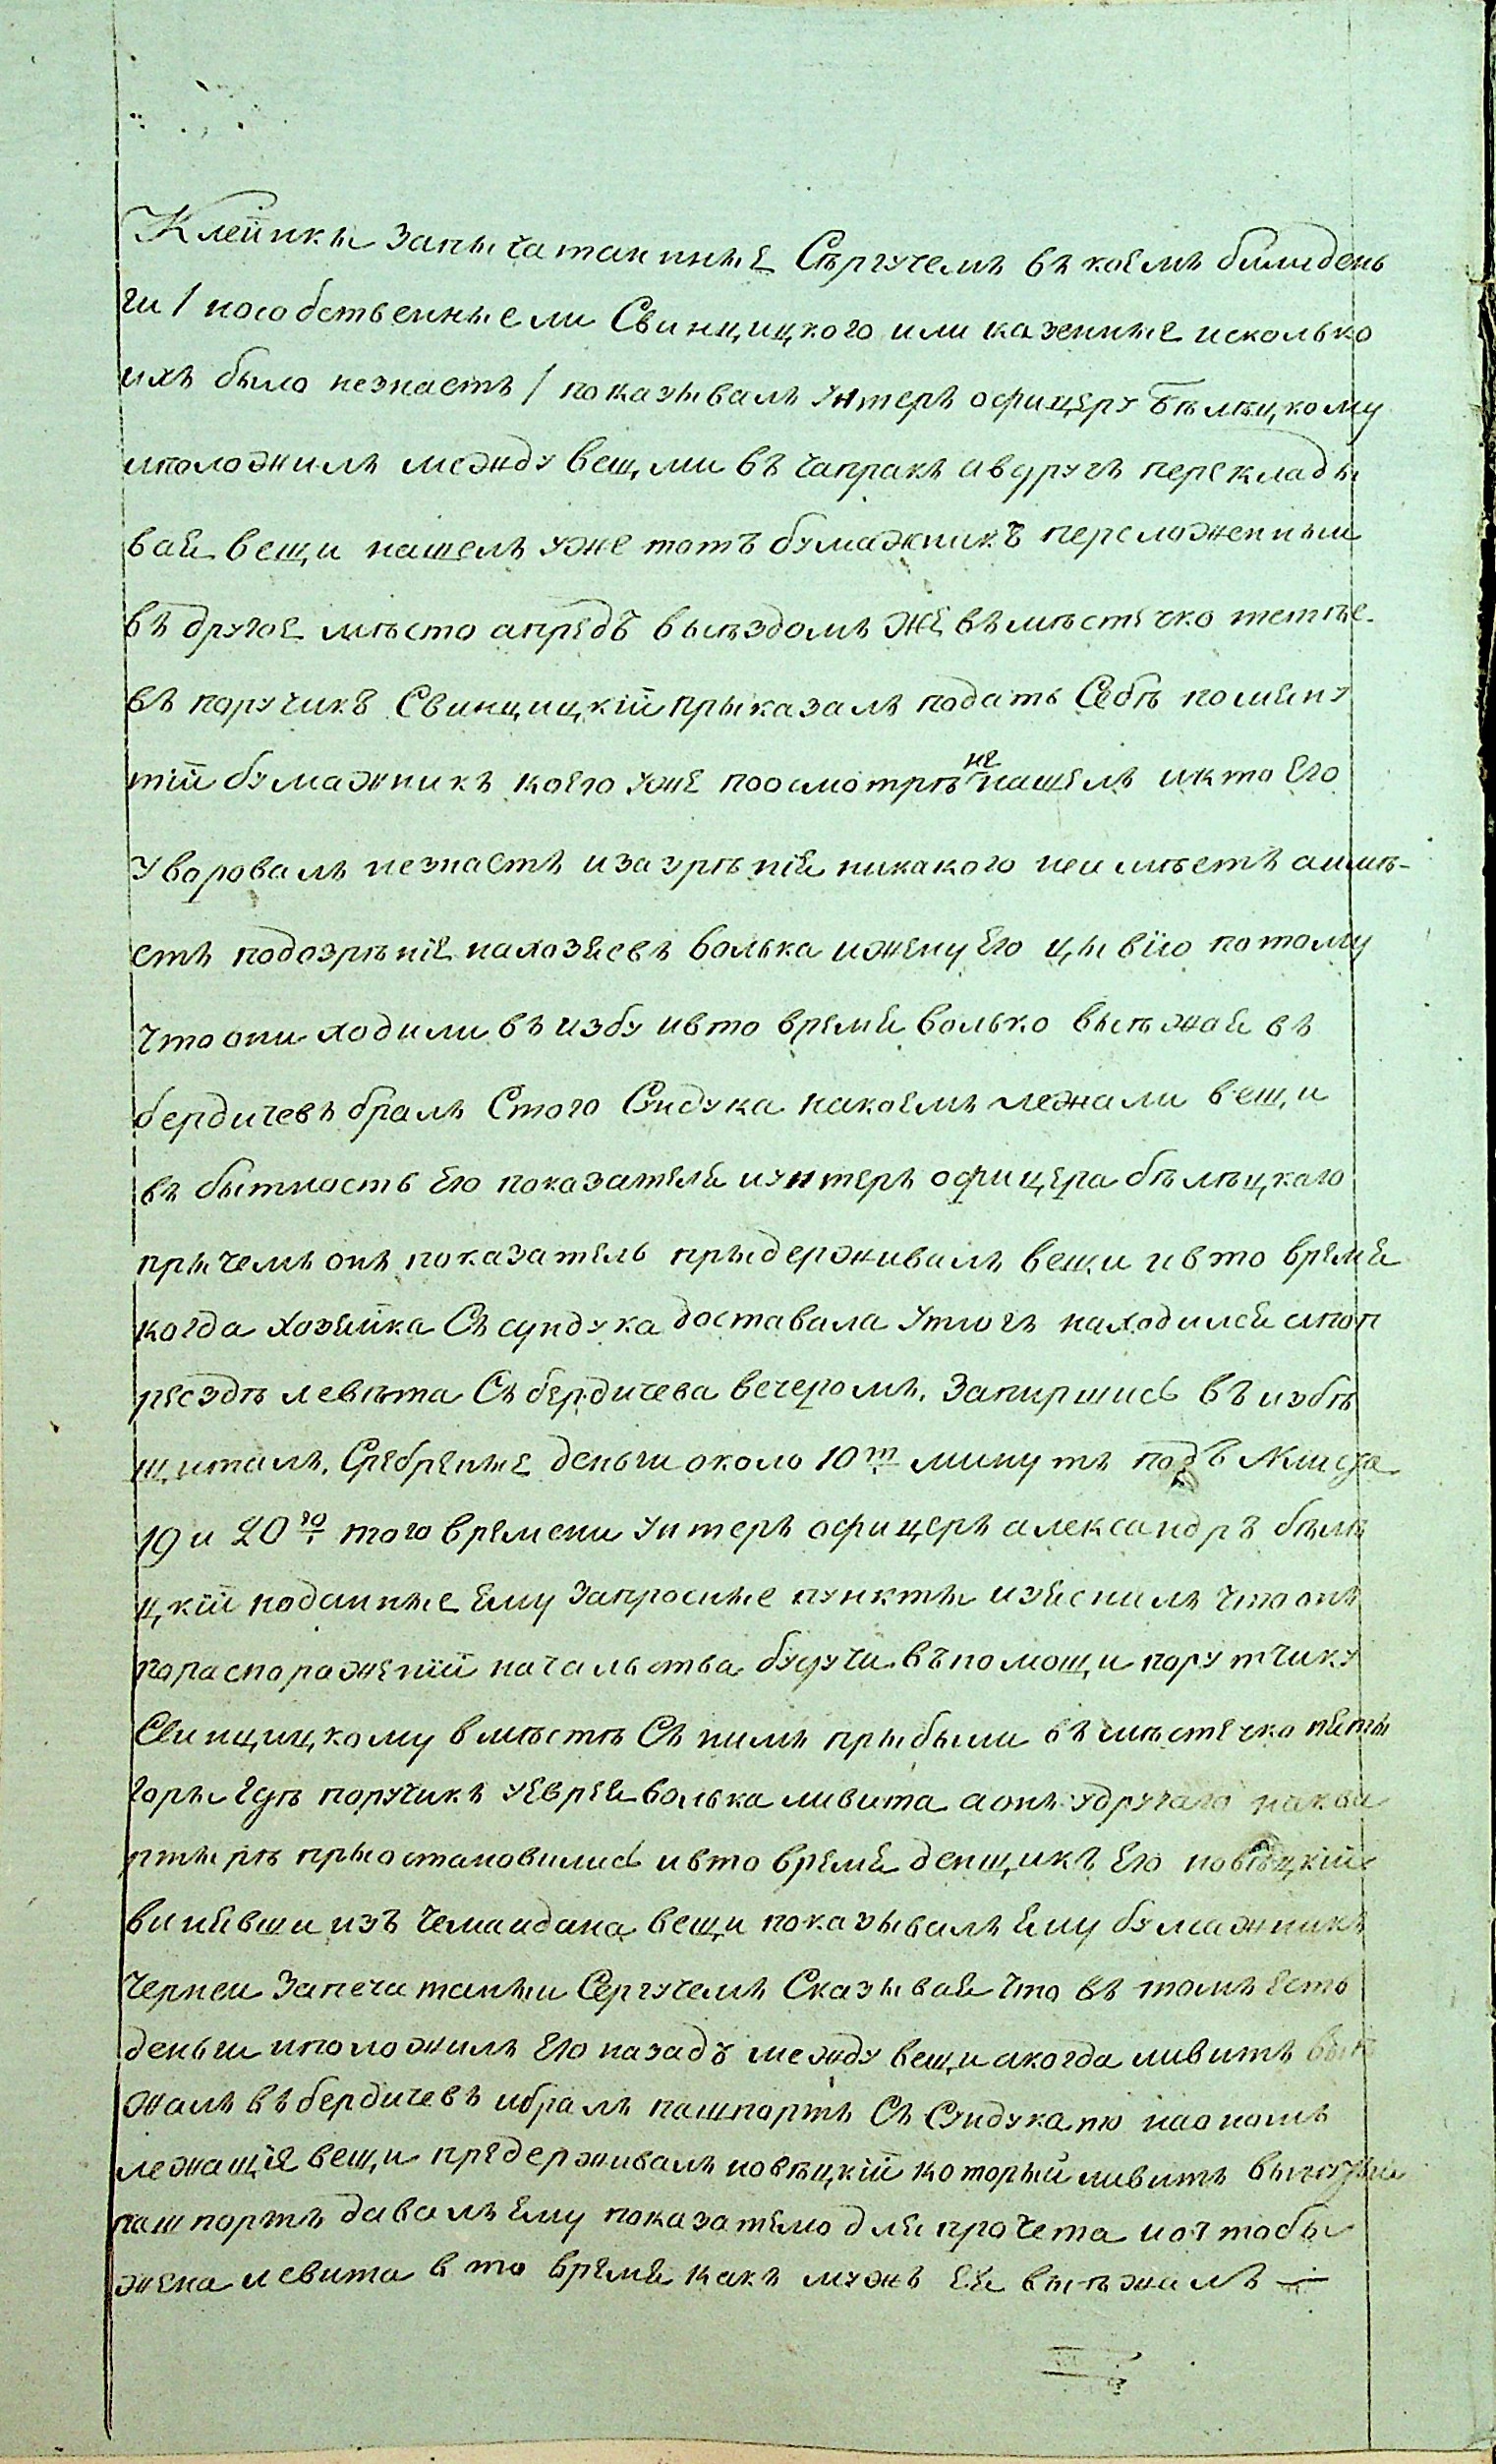 Клейнкы запычатанные Сѣргучемъ въ коемъ были день
ги / но собственные ли Свинцицкого или казенные и сколько
ихъ было незнаетъ / показывалъ унтеръ офицеру Бѣлѣцкому
и положилъ между вещми въ чапракъ а вдругъ переклады
вая вещи нашелъ уже тотъ бумажникъ переложенный
въ другое мѣсто а предъ выѣздомъ же въ мѣстечко тетые-
въ поручикъ Свинцицкій прыказалъ подать Себѣ помяну
тій бумажникъ коего уже по осмотрѣ не нашелъ и кто его
уворовалъ незнаетъ и зазрѣнія никакого неимѣетъ а имѣ-
етъ подозрѣніе на хозяевъ Волька и жену его Цывію потому
что они ходили въ избу и в то время Волько выѣзжая въ
Бердичевъ бралъ С того Сундука на коемъ лежали вещи
въ бытность его показателя и унтеръ офицера Бѣлѣцкаго
прычемъ онъ показатель прыдерживалъ вещи и в то время
когда хозяйка Съ сундука доставала утюгъ находился и по п
реездѣ левѣта Съ Бердичева вечеромъ, запиршись въ избѣ
щиталъ. Сребреные деньги около 10 т минутъ подъ числа
19 и 20 го того времени унтеръ офицеръ александръ бѣлѣ
цкій на данные ему запросные пункты изъяснилъ что онъ
по распоряженій начальства будучи въ помощи порутчику
Свинцицкому вмѣстѣ Съ нимъ прыбыли въ мѣстечко пяты
горы гдѣ поручикъ у еврея Волька ливита а онъ у другаго на ква
ртырѣ прыостановились и в то время денщикъ его новѣцкій
винявши изъ чемандана вещи показывалъ ему бумажникъ
черней запечатаный Сергучемъ Сказывая что въ томъ есть
деньги и положилъ его назадъ между вещи а когда ливитъ выѣ
жалъ въ бердичевъ и бралъ пашпортъ Съ Сундука то на ономъ
лежащіе вещи предерживалъ новѣцкій который ливитъ вынувши
пашпортъ давалъ ему показателю для прочета но чтобы
жена левита в то время какъ мужъ ея выѣзжалъ —